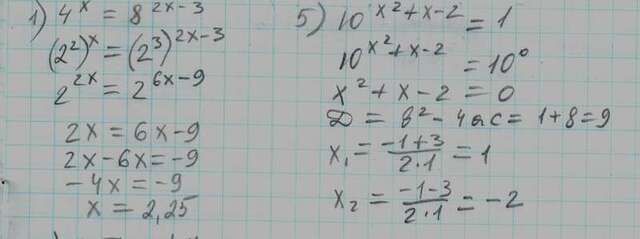 1) 4^x = 8^{2x-3}
(2^2)^x = (2^3)^{2x-3}
2^{2x} = 2^{6x-9}
2x = 6x-9
2x-6x=-9
-4x=-9
x = 2,25
5) 10^{x^2+x-2} = 1
10^{x^2+x-2} = 10^0
x^2+x-2=0
D = b^2-4ac = 1+8=9
x_1 = \frac{-1+3}{2·1} = 1
x_2 = \frac{-1-3}{2·1} = -2